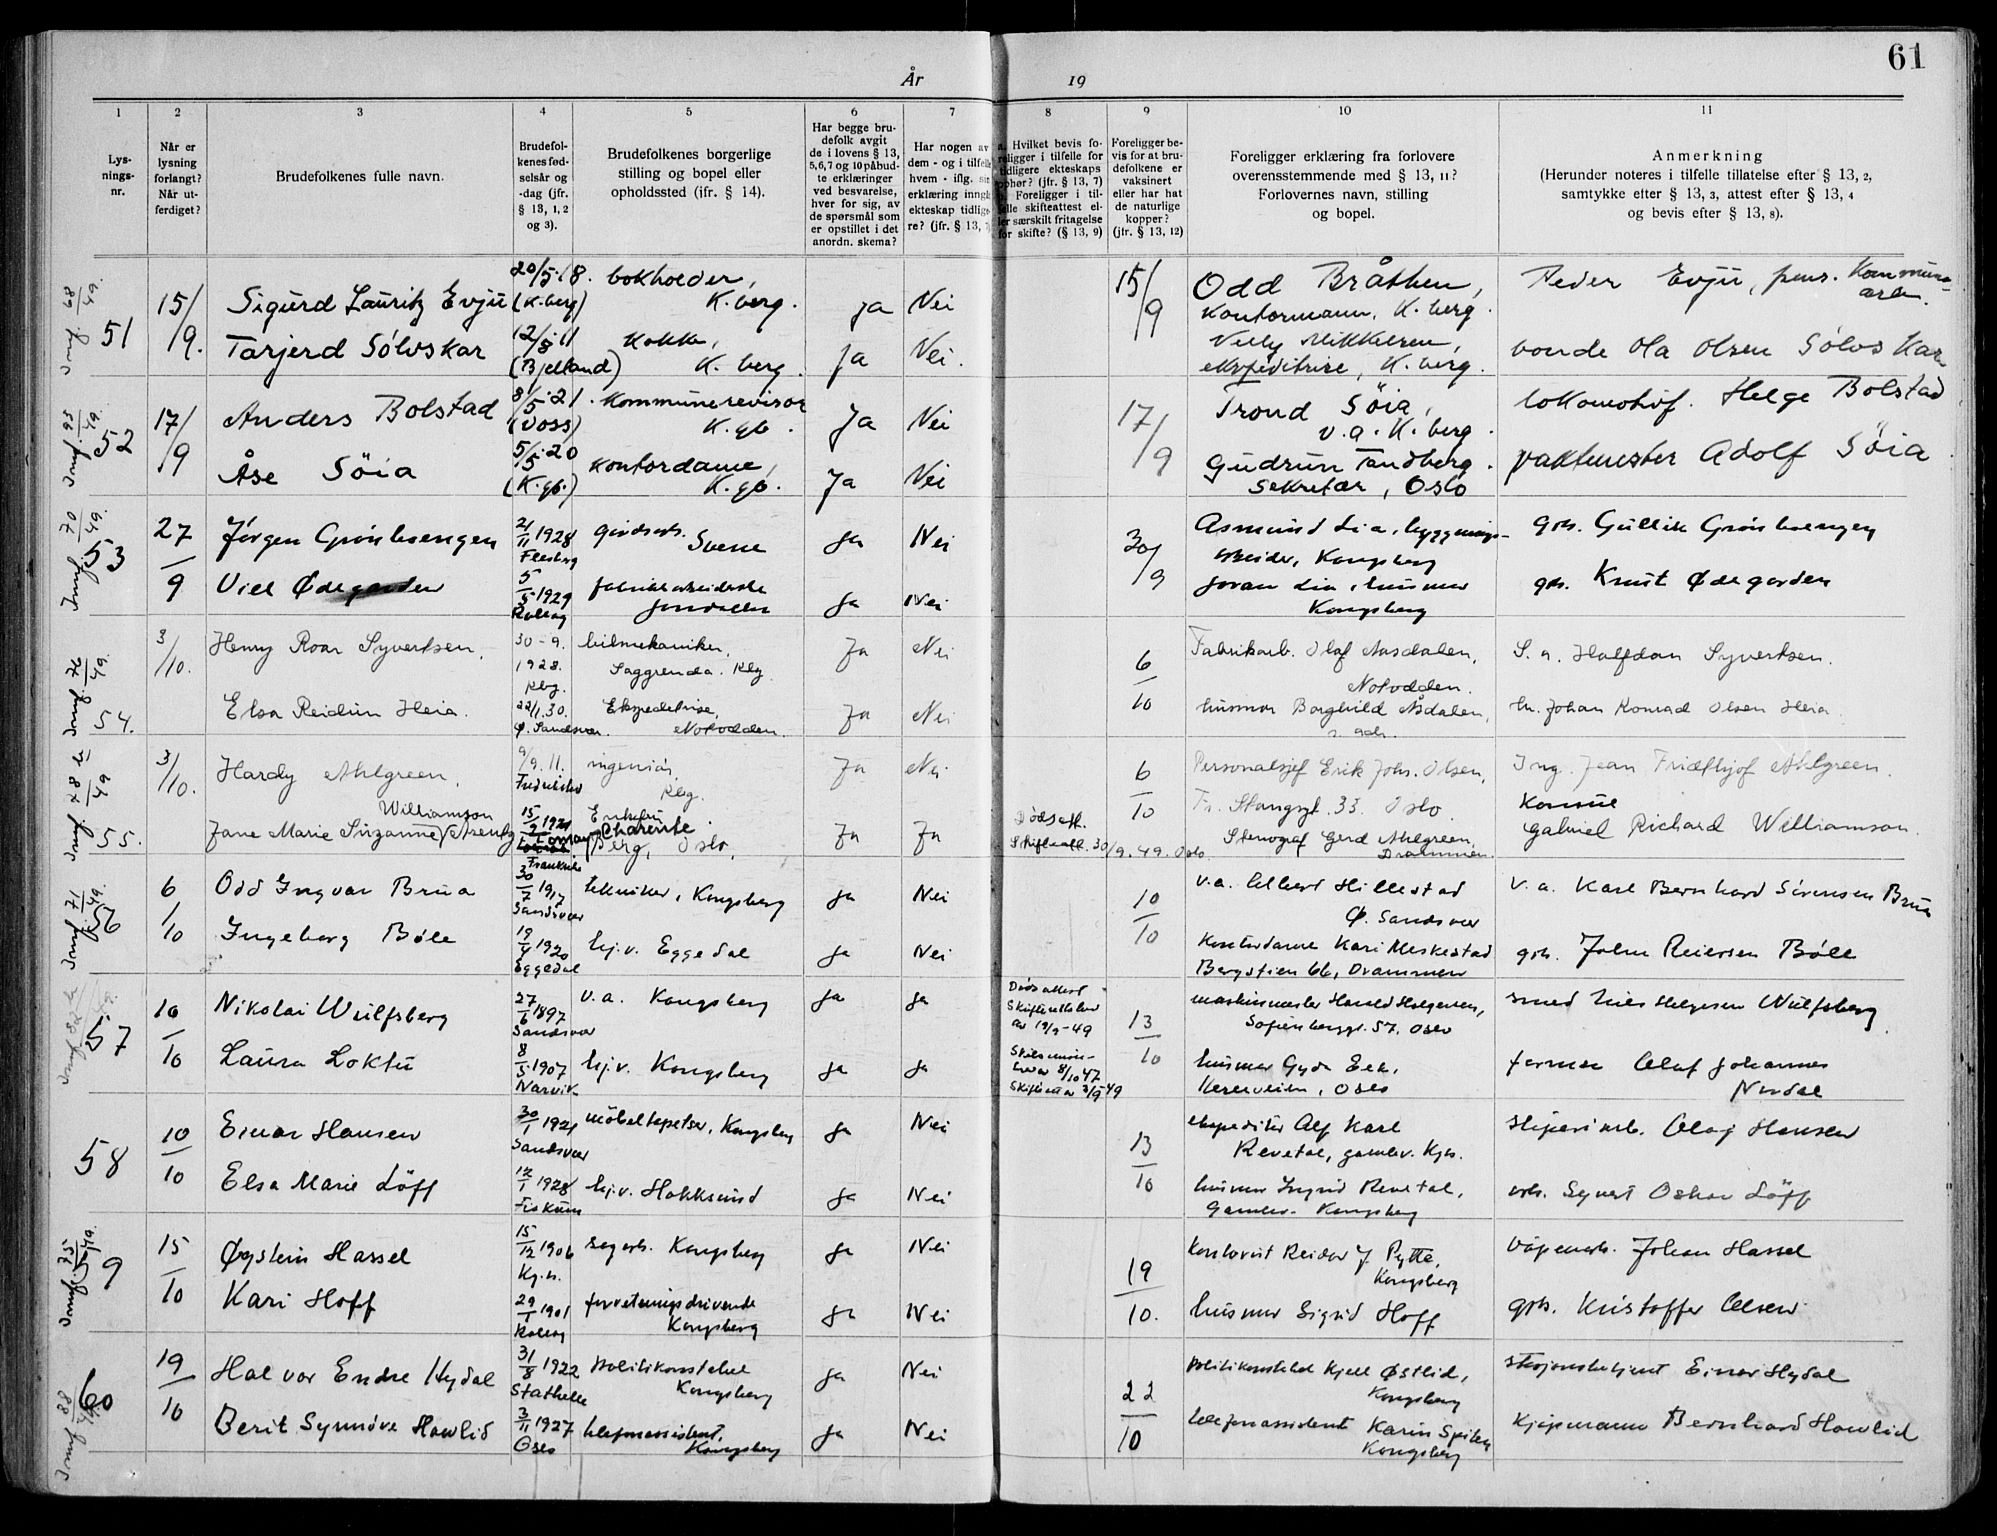 61
År 19
1 2 3 4 5 6 7 8 9 10 11
Lys-
nings-
nr.
Når er
lysning
forlangt?
Når ut-
ferdiget?
Brudefolkenes fulle navn.
Brudefol-
kenes fød-
selsår og
-dag (jfr.
§ 13, 1, 2
og 3).
Brudefolkenes borgerlige
stilling og bopel eller
opholdssted (ifr. § 14).
Har begge bru-
defolk avgit
de i lovens § 13,
5,6,7 og 10 påbud-
te erklæringer
ved besvarelse,
hver for sig, av
de spørsmål som
er opstillet i det
anordn. skema?
Har nogen av
dem - og i tilfelle
hvem - iflg. sin
erklæring inngått
ekteskap tidlige-
re? (jfr. § 13, 7)
a. Hvilket bevis fo-
religger i tilfelle for
tidligere ekteskaps
ophør? (jfr. § 13, 7)
b. Foreligger i til-
felle skifteattest el-
ler særskilt fritagelse
for skifte? (§ 13, 9)
Foreligger be-
vis for at bru-
defolkene er
vaksinert
eller har hat
de naturlige
kopper?
(jfr. § 13, 12)
Foreligger erklæring fra forlovere
overensstemmende med § 13, 11?
Forlovernes navn, stilling
og bopel.
Anmerkning
(Herunder noteres i tilfelle tillatelse efter § 13, 2,
samtykke efter § 13, 3, attest efter § 13, 4
og bevis efter § 13, 8).
Innf. 68/49.
51
15/9.
Sigurd Lauritz Evju
20/5.18.
(K.berg)
bokholder,
K.berg.
Ja Nei
15/9
Odd Bråthen,
Kontormann, K.berg.
Peder Evju, pens. Kommune-
arb.
Tarjerd Sølvskar
12/8 11
(Bjelland)
Kokke,
K.berg.
Ja Nei.
Mikkelsen,
ekspeditrise, K.berg.
bonde Ola Olsen Sølvskar
Innf. 65/49.
52
17/9
Anders Bolstad
8/5.21.
(Voss)
Kommunerevisor
K.gb.
Ja Nei
17/9
Trond Söia,
v.a. K.berg.
lokomotivf. Helge Bolstad
Åse Söia
5/5.20
(K.gb.)
Kontordame,
K.gb.
Ja Nei
Gudrun Tandberg.
Sekretær, Oslo
vaktmester Adolf Söia.
Innf. 70/49.
53
27/9
Jørgen Grønhsengen
21/11 1928
Flesberg
gårdsarb.
Svene
Ja Nei
30/9
Asmund Lia, bygnings-
arbeider, Kongsberg
grb. Gullik Grønhsengen
Viel Ødegarden
5/5 1929
Rollag
fabrikarbeiderske
Jondalen
Ja Nei
Joran Lia, husmor
Kongsberg
grb. Knut Ødegarden
Innf. 76/49.
54.
3/10.
Henry Roar Syvertsen.
30-9.
1928.
Kbg.
bilmekaniker,
Saggrenda. Kbg.
Ja Nei
6/10
Fabrikarb. Olaf Aasdalen,
Notodden.
S.a. Halfdan Syvertsen.
Elsa Reidun Heia.
22/1.30.
Ø. Sandsvær.
Ekspeditrise,
Notodden.
Ja Nei
husmor Borghild Åsdalen,
Johan Konrad Olsen Heia
Innf. 78/49
55.
3/10.
Hardy Ahlgreen,
9/9.11.
Fredrikstad
ingeniør,
Kbg.
Ja Nei
6/10
Personalsjef Erik Johs. Olsen,
Fr. Stangsgt. 33. Oslo.
Ing. Jean Fridthjof Ahlgreen.
Williamson
Jane Marie Suzanne Arentz
15/2 1921
Charente
Frankrike
Enkefru
Berg, Oslo.
Ja Ja
Dødsatt.
Skifteatt. 30/9.49. Oslo
Stenograf Gerd Ahlgreen,
Drammen.
Konsul
Gabriel Richard Williamson.
Innf. 71/49.
56
6/10
Odd Ingvar Brua
30/7 1917
Sandsvær
tekniker, Kongsberg
Ja Nei
10/10
v.a. Albert Hillestad
Ø. Sandsvær
v.a. Karl Bernhard Sørensen Brua
Ingeborg Bøle
19/4 1920
Eggedal
hj.v. Eggedal
Ja Nei
Kontordame Kari Meskestad
Bergstien 66, Drammen
grb. John Reiersen Bøle
57
10/10
Nikolai Wulfsberg
27/6 1897
Sandsvær
v.a. Kongsberg
Ja Ja
Dødsattest
Skifteattest
av 19/9-49
13/10
maskinmester Harald Halgersen,
Sofienberggt. 57, Oslo
smed Nils Helgesen Wulfsberg
Laura Loktu
8/5 1907
Narvik
hj.v. Kongsberg
Ja Ja
8/10 47
Skifteatt av 3/9 49
husmor Gyda Eek,
Oslo
former Olaf Johannes
Nordal
58
10/10
Einar Hansen
30/1 1921
Sandsvær
möbeltapetser, Kongsberg
Ja Nei
13/10
ekspeditør Alf Karl
Revetal, gamlev. Kgb.
sliperiarb. Olaf Hansen
Elsa Marie Löff
12/1 1928
Fiskum
hj.v. Hokksund
Ja Nei
husmor Ingrid Revetal,
Gamlev. Kongsberg
arb. Syvert Oskar Löff
Innf. 75/49.
59
15/10
Øystein Hassel
15/12 1906
Kg.b.
sagarb. Kongsberg
Ja Nei
19/10.
Kontorist Reidar J Pytte,
Kongsberg
våpenarb. Johan Hassel
Kari Hoff
29/1 1901
Rollag
forretningsdrivende
Kongsberg
Ja Nei
husmor Sigrid Hoff
grb. Kristoffer Olsen
Innf. 88
60
19/10
Halvor Endre Nydal
31/8 1922
Stathelle
politikonstabel
Kongsberg
Ja Nei
22/10
politikonstabel Kjell Østlid,
Kongsberg
stasjonsbetjent Einar Nydal
Berit Synnöve Howlid
3/11 1927
Oslo
telefonassistent,
Kongsberg
Ja Nei
telefonassistent Karin Spiten
Kongsberg
Kjøpmann Bernhard Howlid